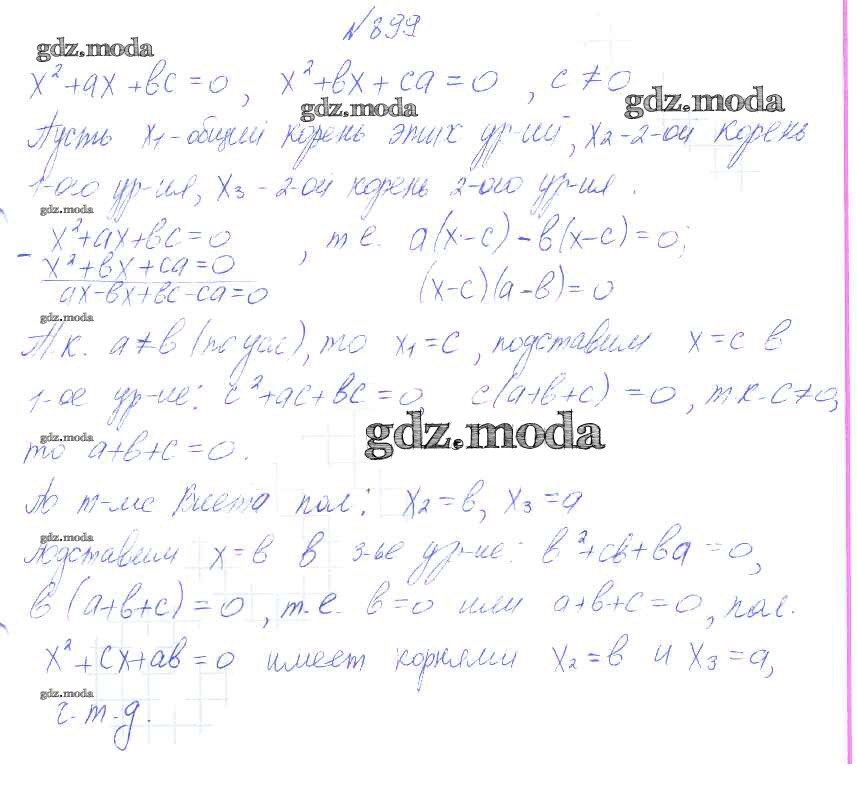 №899
gdz.moda
x²+ax+вc=0, x²+вx+ca=0, c≠0
gdz.moda
gdz.moda
Пусть x₁-общий корень этих ур-ий, x₂-2-ой корень
1-ого ур-ия, x₃-2-ой корень 2-ого ур-ия.
gdz.moda
- x²+ax+вc=0, т.е. a(x-c)-в(x-c)=0;
x²+вx+ca=0
ax-вx+вc-ca=0 (x-c)(a-в)=0
gdz.moda
Т.к. a≠в (по усл), то x₁=c, подставим x=c в
1-ое ур-ие: c²+ac+вc=0, c(a+в+c)=0, т.к. c≠0,
gdz.moda
gdz.moda
то a+в+c=0.
По т-ме Виета пол: x₂=в, x₃=a
gdz.moda
Подставим x=в в 3-ье ур-ие: в²+cв+вa=0,
в(a+в+c)=0, т.е. в=0 или a+в+c=0, пол.
x²+cx+aв=0 имеет корнями x₂=в и x₃=a,
gdz.moda
ч.т.д.